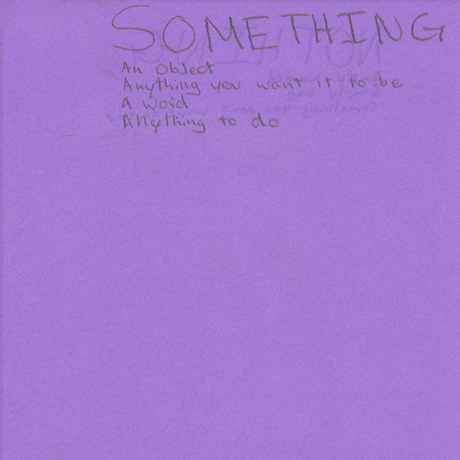 SOMETHING
An Object
Anything you want it to be
A word
Anything to do